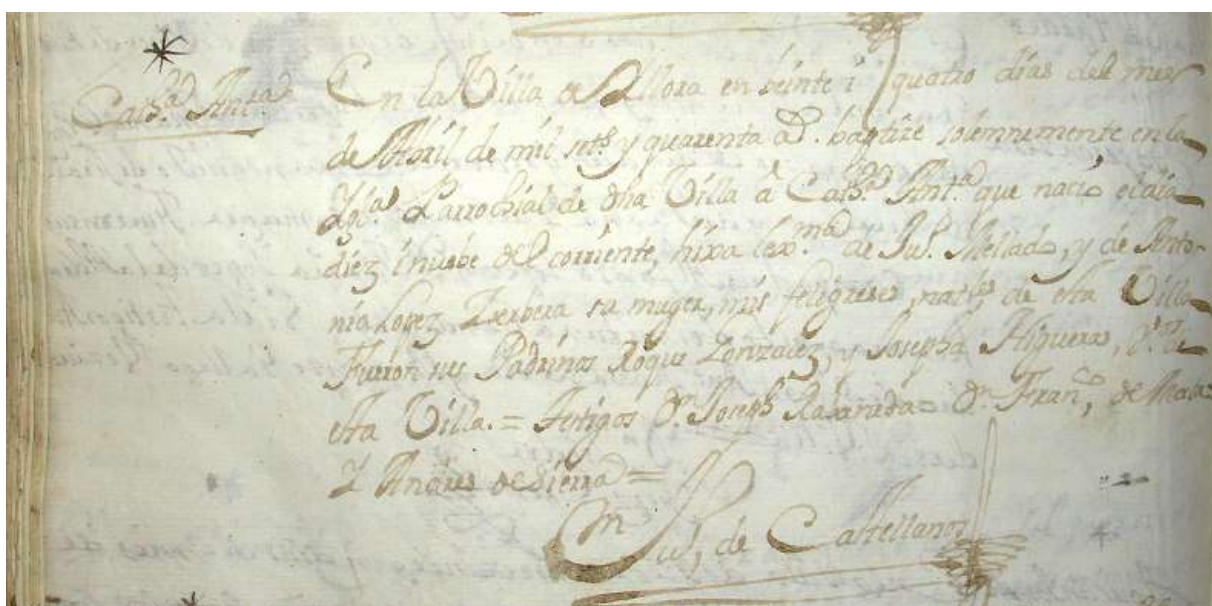 Cath.ª Ant.ª
En la Villa de Yllora en beinte i quatro dias del mes
de Abril de mil sett.s y quarenta a.s baptize solemnemente en la
Ygl.ª Parrochial de dha Villa â Cath.ª Ant.ª que naciò el dia
diez i nuebe del corriente, hixa lex.ma de Ju.º Mellado, y de Anto-
nia Lopez Zerbera su muger, mis feligreses, nat.les de esta Villa
Fueron sus Padrinos Roque Gonzalez, y Josepha Higueras, v.s de
esta Villa. = Testigos D.n Joseph Rabaneda = D.n Fran.co de Mata =
I Andres de Sierra =
M.º Ju.º de Castellanos